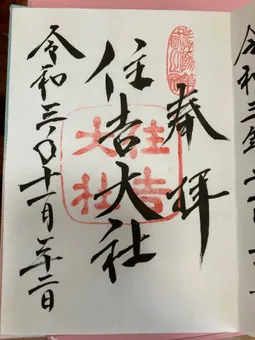 奉拝
住吉大社
住吉
大社
令和三年十一月二十二日
令和三年